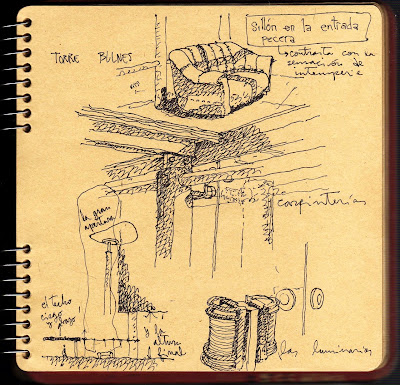 sillón en la entrada
pecera
TORRE BULNES
contrasta con la
sensación de
intemperie
carpinterías
la gran
apertura
el techo
ciego
y bajo
y la
altura
final
las luminarias